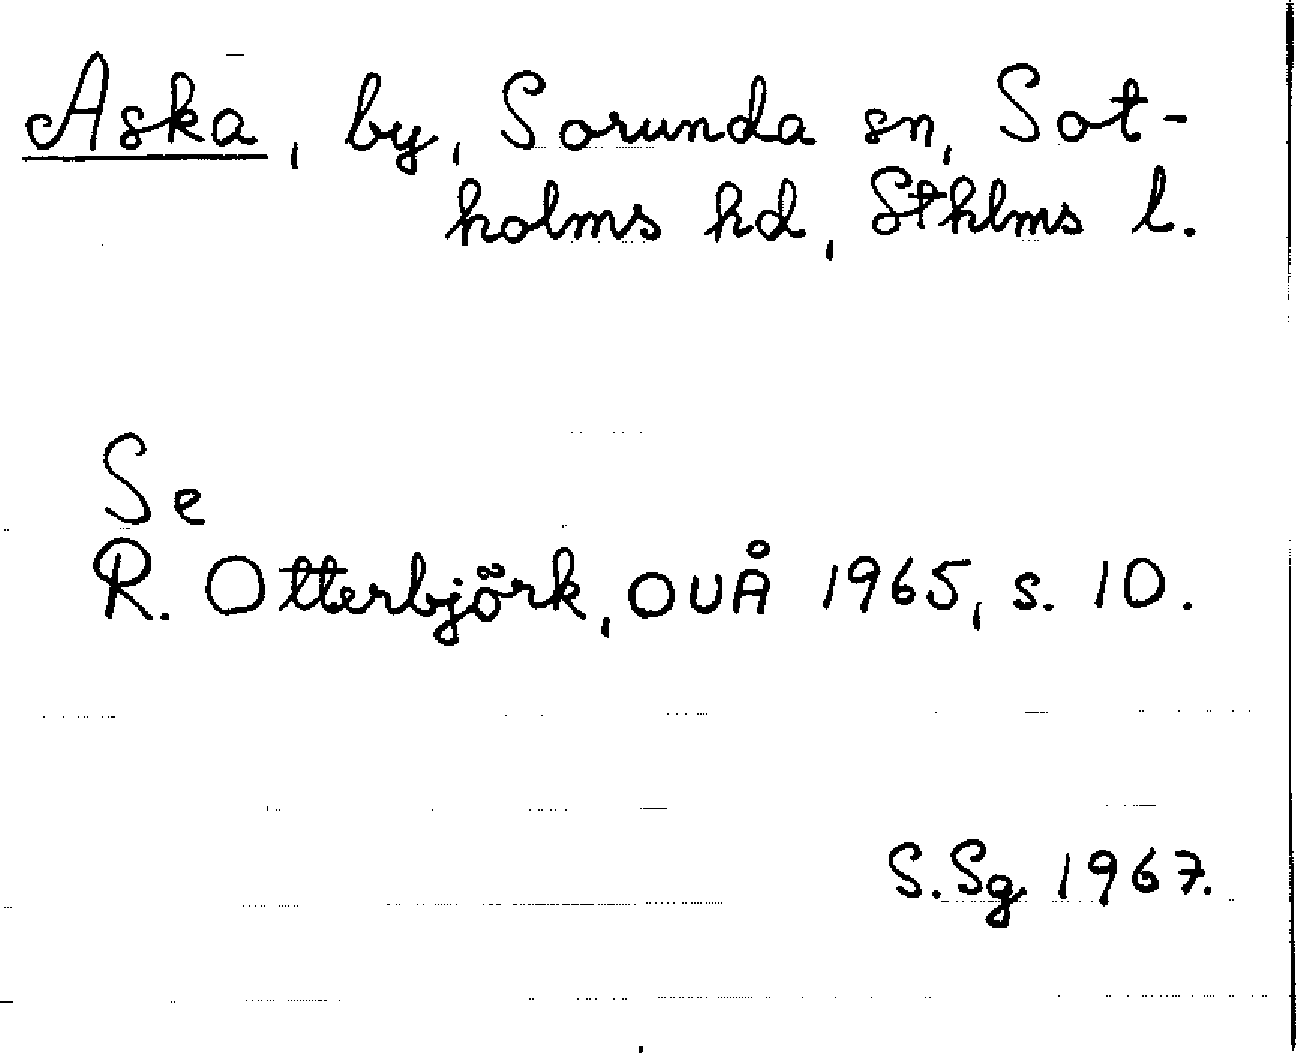 Aska, by, Sorunda sn, Sot-
holms hd, Sthlms l.
Se
R. Otterbjörk, OUÅ 1965, s. 10.
S.Sg 1967.